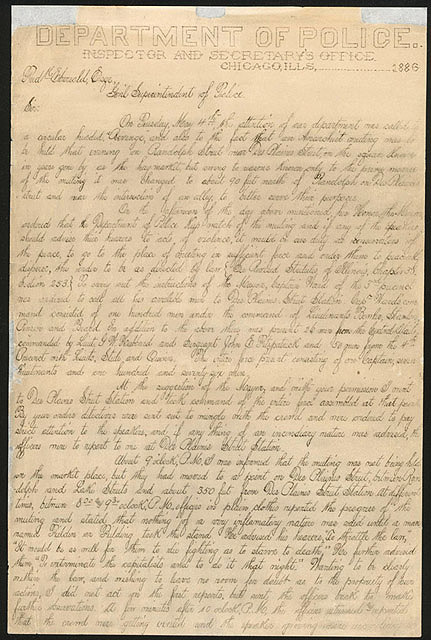 DEPARTMENT OF POLICE.
INSPECTOR AND SECRETARY'S OFFICE.
CHICAGO, ILLS, 188
Fred'k Ebersold, Esqr
Gen'l Superintendent of Police
Sir:
On Tuesday, May 4th the attention of our department was called
a circular headed "Revenge," and also to the fact that an Anarchist meeting was to
be held that evening on Randolph Street near Des Plaines Street, on the square
in years gone by as the haymarket, but owing to reasons known only to the prime movers
of the meeting it was changed to about 90 feet north of Randolph on Des Plaines
street and near the intersection of an alley to better serve their purposes.
On the afternoon of the day above mentioned, his Honor, the Mayor,
ordered that the Department of Police keep watch of the meeting and if any of the speakers
should advise their hearers to acts of violence, it would be our duty as conservators of
the peace, to go to the place of meeting in sufficient force and order them to peaceably
disperse, the order to be as directed by law. Revised Statutes of Illinois, Chapter 38,
Section 253. To carry out the instructions of the Mayor, Captain Ward of the 3rd precinct
was ordered to call all his available men to Des Plaines Street Station. Capt Wards com-
mand consisted of one hundred men under the command of Lieutenants Bowler, Stanton,
Penzen and Beard. In addition to the above there was present 26 men from the Central detail,
commanded by Lieut G. W. Hubbard and Sergeant John E. Fitzpatrick and 50 men from the 4th
Precinct with Lieuts. Steele and Quinn. The entire force present consisting of one Captain, seven
Lieutenants and one hundred and seventy-six men.
At the suggestion of the Mayor, and with your permission I went
to Des Plaines Street Station and took command of the entire force assembled at that point.
By your orders detectives were sent out to mingle with the crowd and were ordered to pay
strict attention to the speakers, and if anything of an incendiary nature was advised, the
officers were to report to me at Des Plaines Street Station.
About 8 o'clock, P.M. I was informed that the meeting was not being held
on the market place, but they had moved to a point on Des Plaines Street, between Ran-
dolph and Lake Streets and about 350 feet from Des Plaines Street Station. At different
times, between 8:00 & 9:30 o'clock P.M. officers in plain clothes reported the progress of the
meeting and stated that nothing of a very inflammatory nature was said until a man
named Fielden or Fielding took the stand. He advised his hearers, "to throttle the law."
"It would be as well for them to die fighting as to starve to death." He further advised
them "to exterminate the capitalists and to do it that night." Wanting to be clearly
within the law, and wishing to leave no room for doubt as to the propriety of our
actions, I did not act on the first reports, but sent the officers back to make
further observations. A few minutes after 10 o'clock P.M. the officers returned & reported
that the crowd were getting excited and the speaker growing more